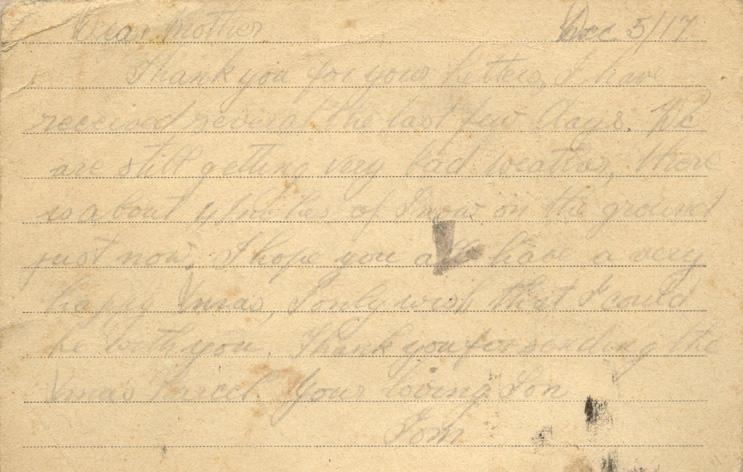 Dear Mother Dec 5/17
Thank you for your letters, I have
received several the last few days. We
are still getting very bad weather, there
is about 4 inches of snow on the ground
just now, I hope you all have a very
happy Xmas, I only wish that I could
be with you. Thank you for sending the
Xmas Parcel. Your loving Son
Tom